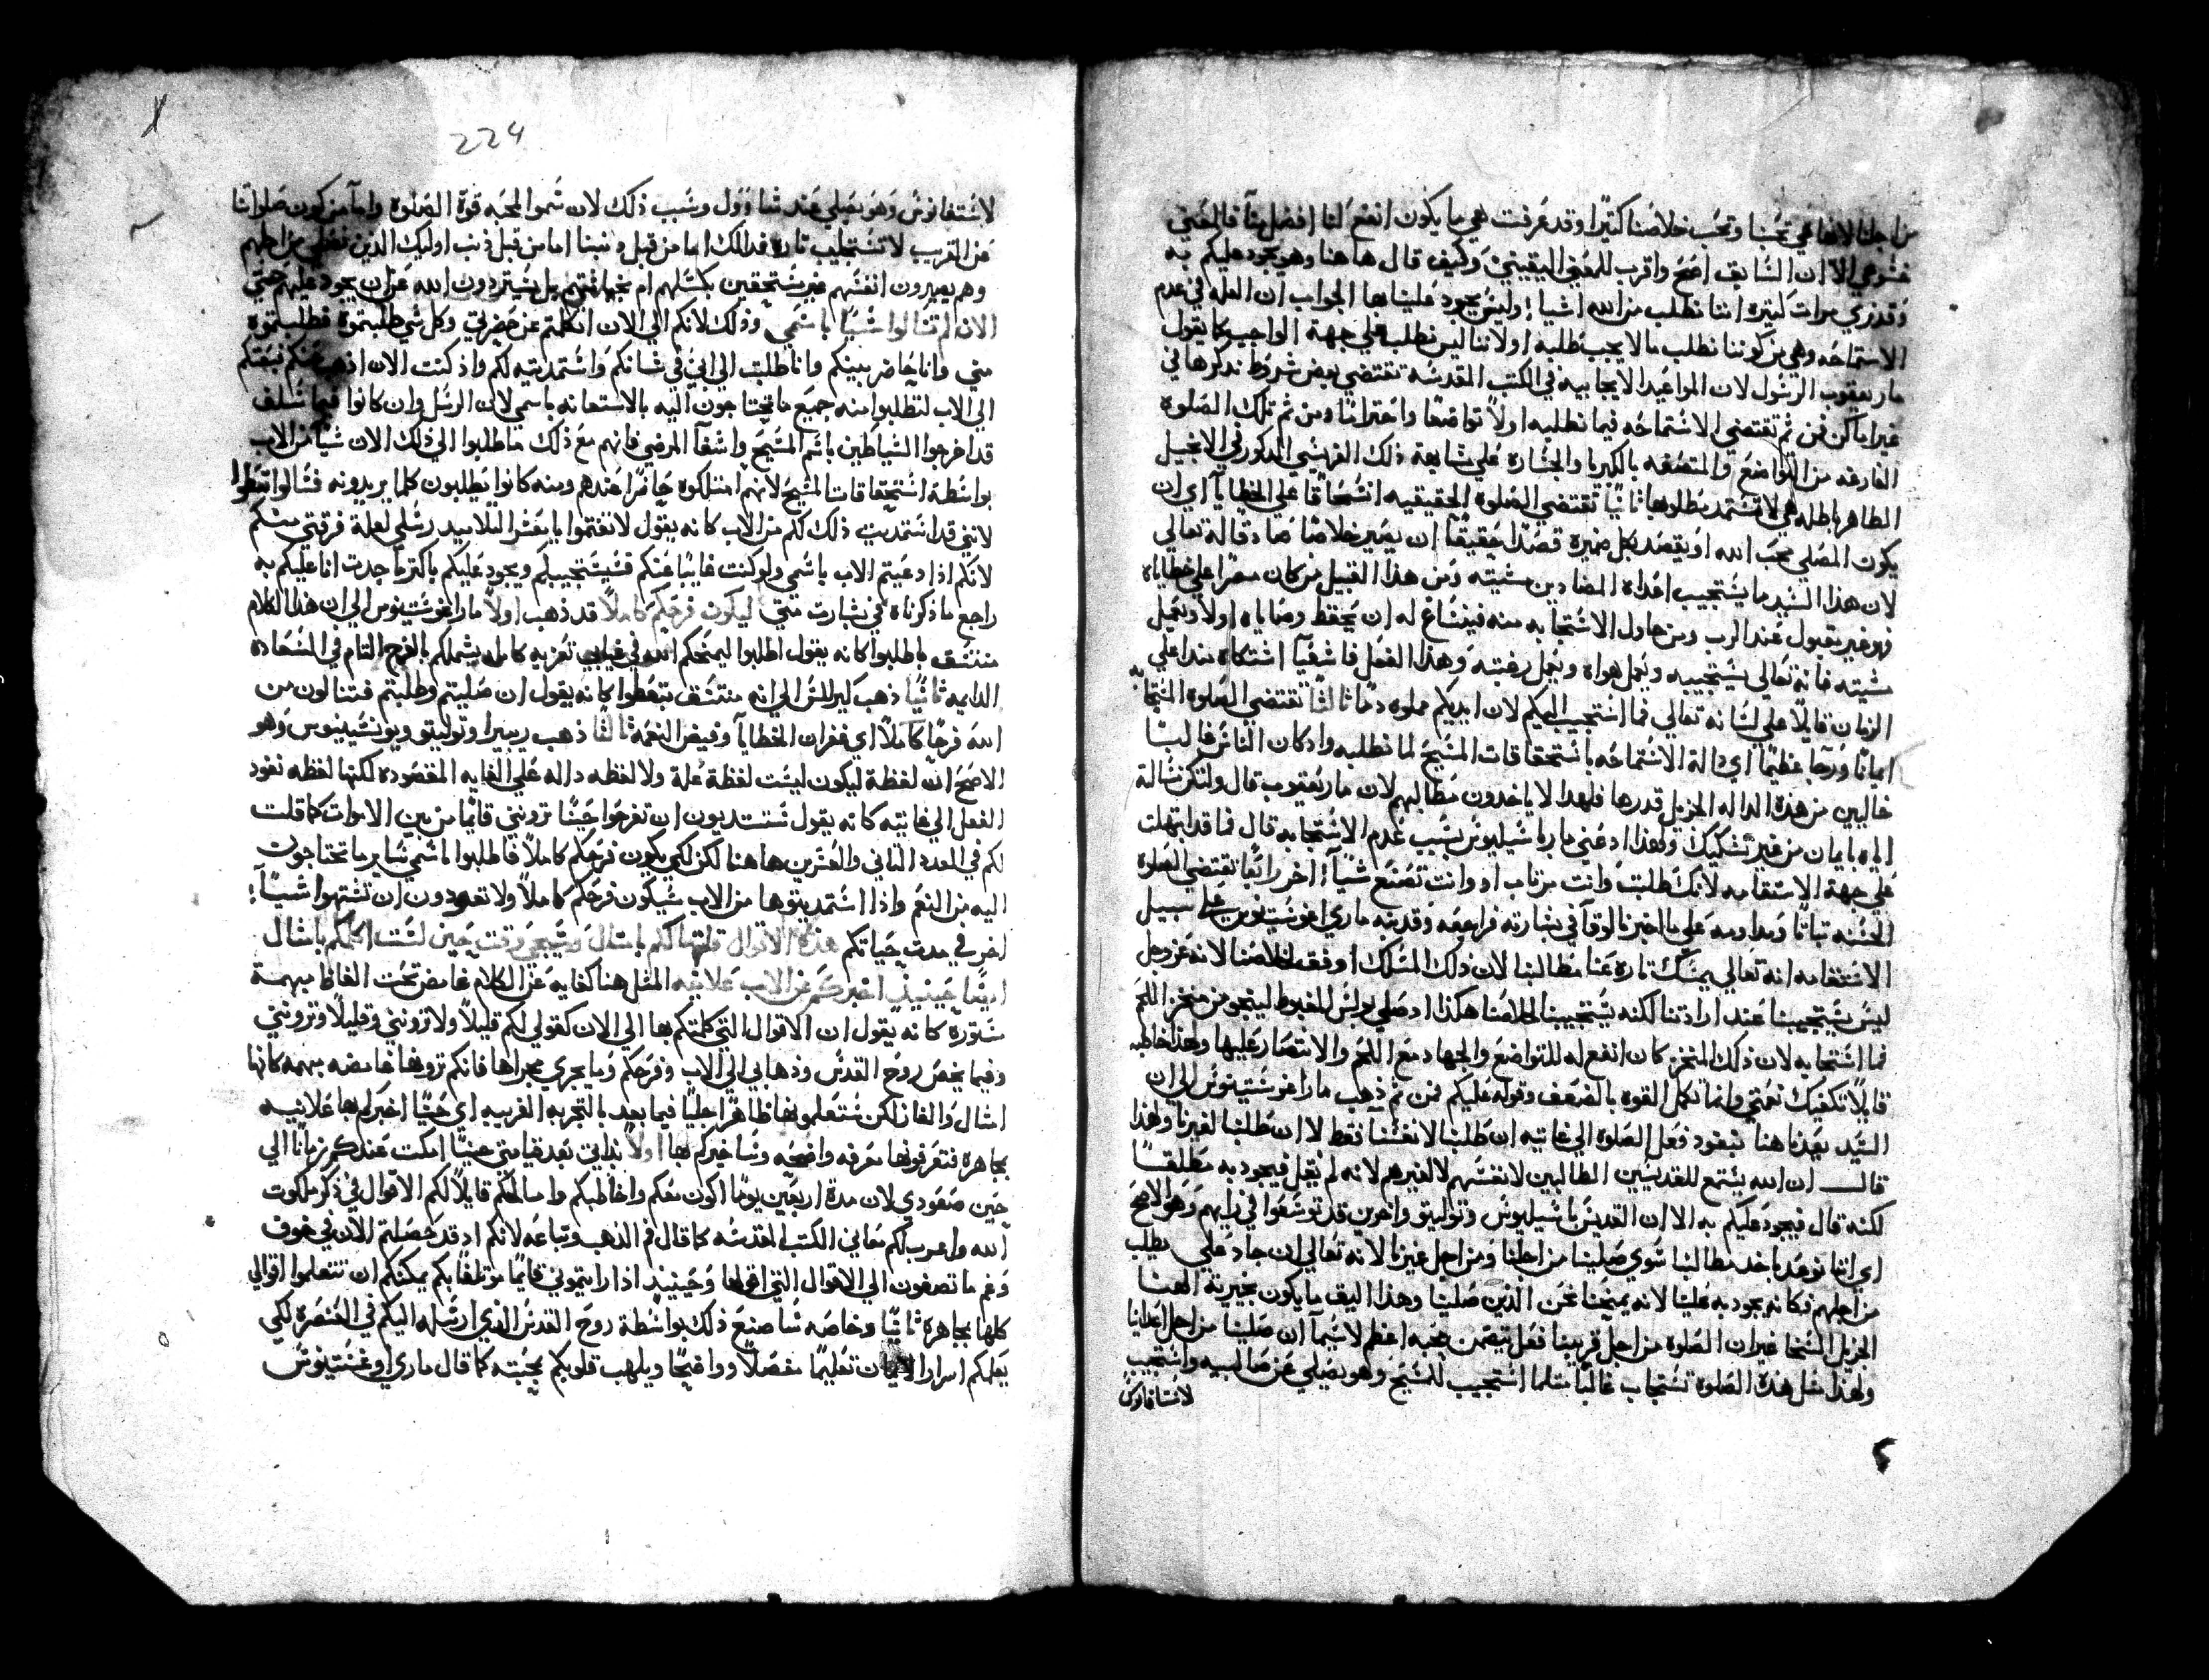 من اجلنا لانها هي تحبنا وتحب خلاصنا كتيرًا وقد عرفت هي ما يكون انفع لنا افضل منا فالمعني
عشوعي الا ان السابق اصح واقرب للمعني اليقيني وكيف قال هاهنا وهو يجود عليكم به
وقد نري مرات كتيره اننا نطلب من الله اشيا وليس يجود علينا بها الجواب ان العله في عدم
الاستماحه وهي من كوننا نطلب ما لا يجب طلبه او لاننا ليس نطلب علي جهة الواجب كما يقول
مار يعقوب الرسول لان المواعيد الايجابيه في الكتب المقدسه تقتضي بعض شروط نذكرها في
غير اماكن فمن ثم تقتضي الاستماحه فيما نطلبه اولاً تواضعًا واحترامًا ومن ثم تلك الصلوه
الفارغه من التواضع والمتصفه بالكبريا والجساره علي مشابهة ذلك الفريسي المذكور في الانجيل
الطاهر باطله هي لا تستمد مطلوبها ثانيًا تقتضي الصلوه الحقيقيه انسحاقًا علي الخطايا اي ان
يكون المصلي محب الله او يقصد بكل ضميره قصدًا حقيقًا ان يصير خلاصًا صادقًا له تعالي
لان هذا السيد ما يستجيب اعداه المضادين مشيته ومن هذا القبيل من كان مصرًا علي خطاياه
فهو غير مقبول عند الرب ومن حاول الاستجابه منه فينساغ له ان يحفظ وصاياه اولا ويعمل
مشيته فانه تعالي يستجيبه ويعمل هواه ويعمل رغبته وهذا الفعل فاشعيا اشتكاه منذ اعلي
الزمان قايلًا علي لسانه تعالي فما استجيب اليكم لان ايديكم مملوه دمًا ثالثًا تقتضي الصلوه المستجابه
ايمانًا ورجا عظيمًا اي دالة الاستماحه باستحقاقات المسيح لما نطلبه واذ كان الناس غالبًا
خاليين من هذه الداله الجزيل قدرها فلهذا لا ياخذون مطالبهم لان مار يعقوب قال ولتكن مسالة
اليه بايمان من غير تشكيك ولهذا اذ عني مار باسيليوس بسبب عدم الاستجابه قال فما قد ابتهلت
علي جهة الاستقامه لانك طلبت وانت مرتاب او وانت تصنع شيا اخر رابعًا تقتضي الصلوه
الحسنه ثباتًا ومداومه علي ما اخبرنا لوقا في بشارته فراجعه وقد نبه ماري اغوستينوس علي سبيل
الاستقامه انه تعالي يمسك تاره عنا مطالبنا لان ذلك المسلك اوفق لخلاصنا لانه عز وجل
ليس يستجيبنا عند ارادتنا لكنه يستجيبنا لخلاصنا هكذا اذ صلي بولس المغبوط لينجو من منخز اللحم
فما استجابه لان ذلك المنخز كان انفع له للتواضع والجهاد مع اللحم والانتصار عليها ولهذا خاطبه
قايلًا تكفيك نعمتي وانما تكمل القوه بالضعف وقوله عليكم فمن ثم ذهب مار اغوستينوس الي ان
السيد يعدنا هنا بنفوذ فعل الصلوة الي غايته ان طلبنا لانفسنا فقط لا ان طلبنا لغيرنا ولهذا
قال ان الله يستمع للقديسين الطالبين لانفسهم لا لغيرهم لانه لم يقل فيجود به مطلقًا
لكنه قال فيجود عليكم به الا ان القديس باسيليوس وتوليتو واخرين قد توسعوا في رايهم وهو الاصح
اي اننا نوعد باخذ مطالبنا سوي صلينا من اجلنا ومن اجل غيرنا لانه تعالي ان جاد علي مطلب
من اجلهم فكانه يجود به علينا لانه يمنحنا نحن الذين صلينا وهذا اليق ما يكون بخيرية الهنا
الجزيل السخا غير ان الصلوه من اجل قريبنا فعل يتضمن محبه اعظم لاسيما ان صلينا من اجل اعداينا
ولهذا مثل هذه الصلوة تستجاب غالبًا مثلما استجيب للمسيح وهو يصلي عن صالبيه واستجيب
لاستافانوس
224
لاستفانوس وهو يصلي عند شاوول وسبب ذلك لان سموا المحبه قوة الصلوة واما من كون صلواتنا
عن القريب لا تستجلب تاره فذالك اما من قبل ذنبنا اما من قبل ذنب اوليك الذين نصلي من اجلهم
وهم يصيرون انفسهم غير مستحقين بكسلهم ام بخباثتهم بل يستردون الله عن ان يجود عليهم حتي
الان لم تسالوا شيًا باسمي وذلك لانكم الي الان اتكلتم عن حضرتي وكل شي طلبتموه فطلبتموه
مني وانا حاضر بينكم وانا طلبت الي ابي في شانكم واستمديته لكم واذ كنت الان اذهب عنكم نبهتكم
الي الاب لتطلبوا منه جميع ما تحتاجون اليه بالاستعانه باسمي لان الرسل وان كانوا فيما سلف
قد اخرجوا الشياطين باسم المسيح واشفا المرضي فانهم مع ذلك ما طلبوا الي ذلك الان شيا من الاب
بواسطة استحقاقات المسيح لانهم امتلكوه حاضرًا عندهم ومنه كانوا يطلبون كلما يريدونه فسالوا تعطوا
لانني قد استمديت ذلك لكم من الاب كانه يقول لا تغتموا يا معشر التلاميد رسلي لعلة فرقتي منكم
لانكم اذا دعيتم الاب باسمي ولو كنت غايبًا عنكم فسيستجيبكم ويجود عليكم باكتر ما جدت انا عليكم به
راجع ما ذكرناه في بشارت متي ليكون فرحكم كاملًا قد ذهب اولًا مار اغوستينوس الي ان هذا الكلام
منتسق باطلبوا كانه يقول اطلبوا ليمنحكم الله في غيابي تعزيه كامله يشملكم بالفرح التام في السعاده
الدايمه ثانيًا ذهب كيرللس الي انه منتسق بتعطوا كانه يقول ان صليتم وطلبتم فستنالون من
الله فرحًا كاملًا اي غفران الخطايا وفيض النعمه ثالثًا ذهب ريبيرا وتوليتو ويونسينيوس وهو
الاصح ان لفظة ليكون ليست لفظة علة ولا لفظه داله علي الغايه المقصوده لكنها لفظه نفود
الفعل الي غايته كانه يقول تستمديون ان تفرحوا حينًا ترونني قايمًا من بين الاموات كما قلت
لكم في العدد الثاني والعشرين هاهنا لكن لكي يكون فرحكم كاملًا فاطلبوا باسمي ساير ما تحتاجون
اليه من النعم واذا استمديتوها من الاب سيكون فرحكم كاملًا ولا تعودون ان تشتهوا شيًا
اخر في مدت حياتكم هذه الاقوال قلتها لكم بامثال وسيجي وقت حين لست اكلمكم بامثال
ايضًا حينيذ اخبركم عن الاب علانيه المثل هنا كنايه عن الكلام غامض تحت الفاظ مبهمة
مستوره كانه يقول ان الاقوال التي كلمتكم بها الي الان كقولي لكم قليلًا ولا ترونني وقليلًا وترونني
وفيما يخص روح القدس وذهابي الي الاب وفرحكم وما يجري مجراها فانكم تروها غامضه مبهمه كانها
امثال والغاز لكن ستعلمونها ظاهرًا جليًا فيما بعد بالتجربه القريبه اي حينًا اخبركم بها علانيه
بمجاهره فتعرفونها معرفه واضحه وساخبركم بها اولًا بذاتي بعد قيامتي حينًا امكت عندكم زمانًا الي
حين صعودي لان مدة اربعين يومًا اكون معكم واخاطبكم واسالكم قايلًا لكم الاقوال في ذكر ملكوت
الله واعرب لكم معاني الكتب المقدسه كما قال فم الذهب وتباعه لانكم اذ قد حصلتم الان في خوف
وغم ما تصغون الي الاقوال التي اقولها وحينيذ اذا رايتموني قايمًا موتلفًا بكم يمكنكم ان تتعلموا اقوالي
كلها بمجاهره ثانيًا وخاصه سا صنع ذلك بواسطة روح القدس الذي ارسله اليكم في العنصره لكي
يعلمكم اسرار الايمان تعليمًا مفصلًا وواضحًا ويلهب قلوبكم بمحبته كما قال ماري اوغستينوس